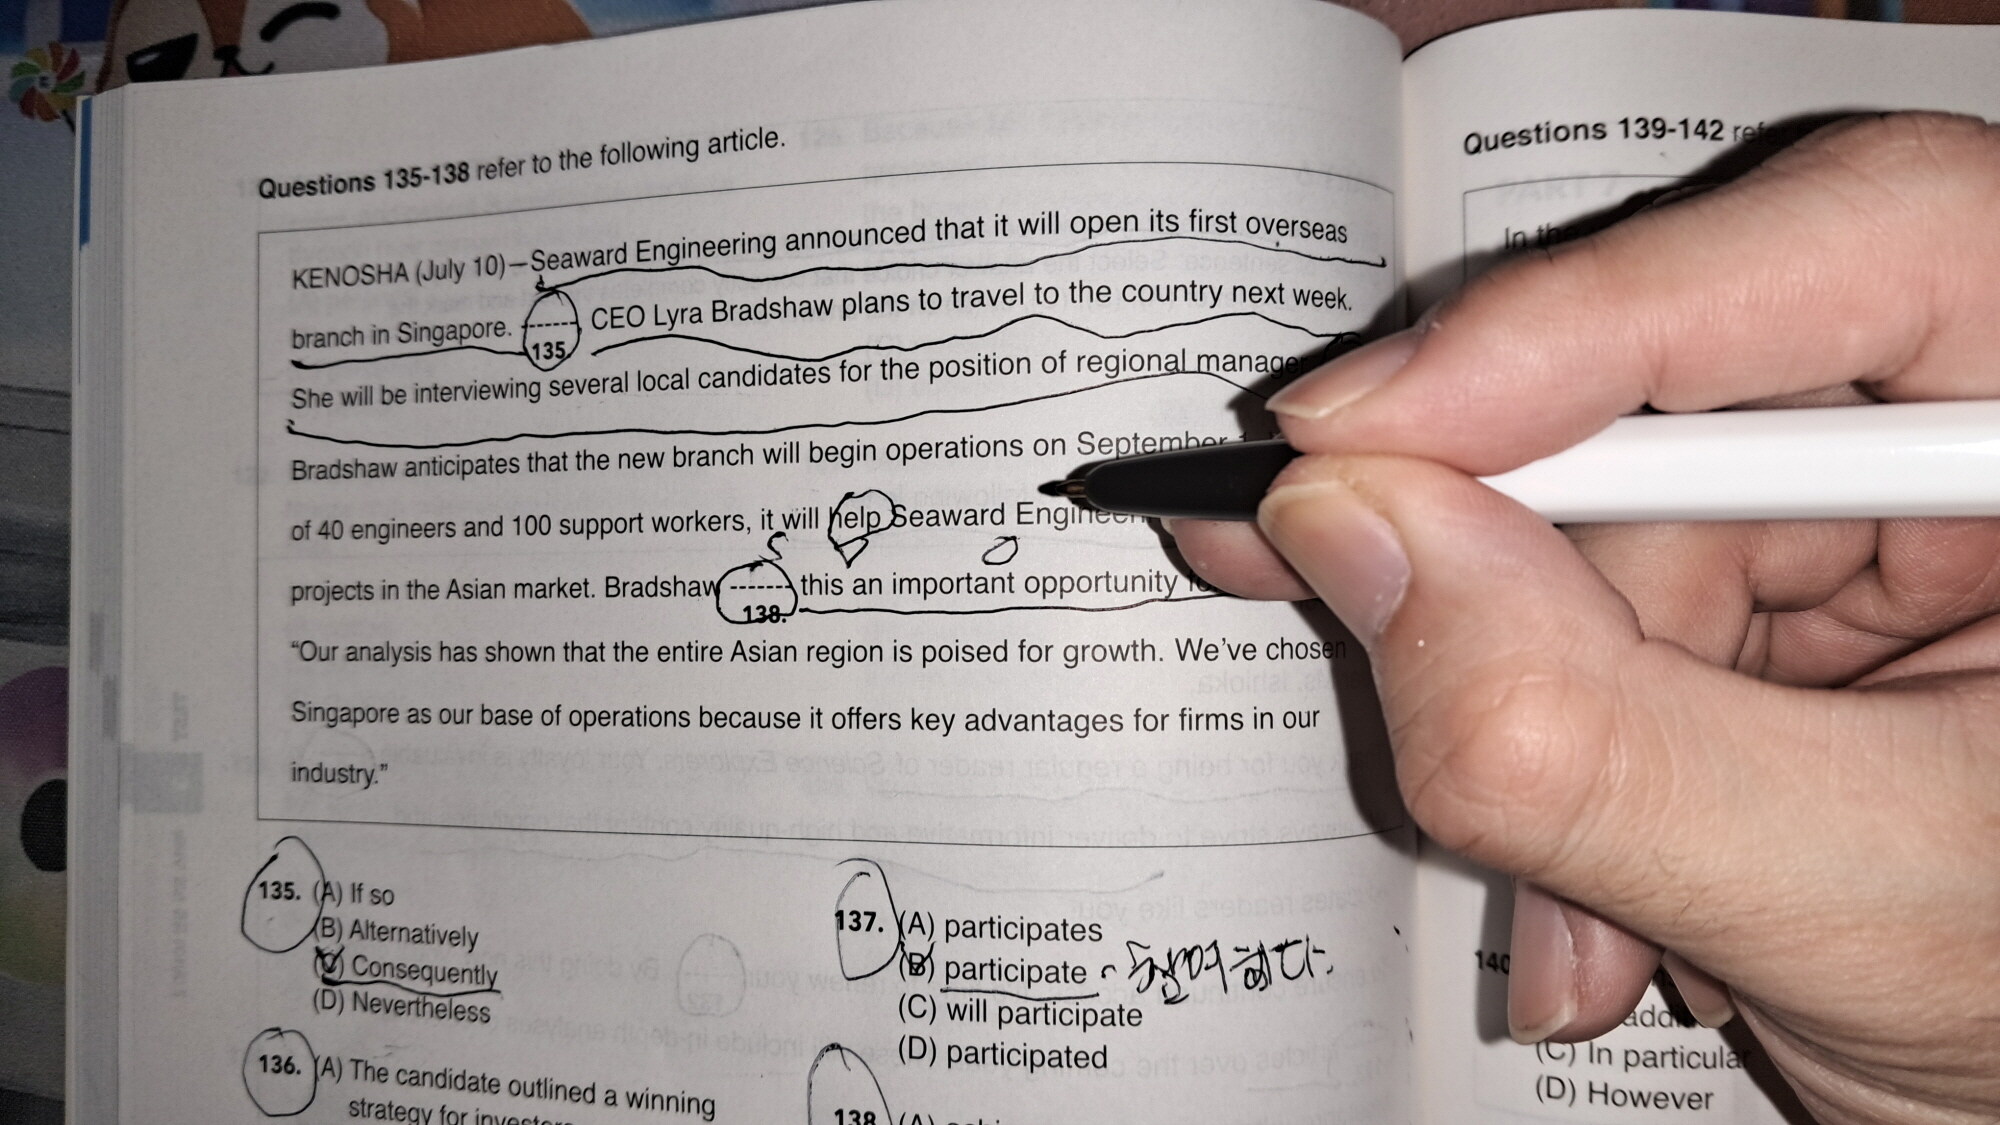 Questions 135-138 refer to the following article.
KENOSHA (July 10)—Seaward Engineering announced that it will open its first overseas
branch in Singapore. ------- CEO Lyra Bradshaw plans to travel to the country next week.
135.
She will be interviewing several local candidates for the position of regional manager
Bradshaw anticipates that the new branch will begin operations on September 1.
of 40 engineers and 100 support workers, it will help Seaward
projects in the Asian market. Bradshaw ------- this an important opportunity
138.
“Our analysis has shown that the entire Asian region is poised for growth. We’ve chosen
Singapore as our base of operations because it offers key advantages for firms in our
industry.”
135. (A) If so
(B) Alternatively
(C) Consequently
(D) Nevertheless
136. (A) The candidate outlined a winning
strategy for
137. (A) participates
(B) participate - 참여하다.
(C) will participate
(D) participated
138 (A)
Questions 139-142
In
140
(C) In particular
(D) However